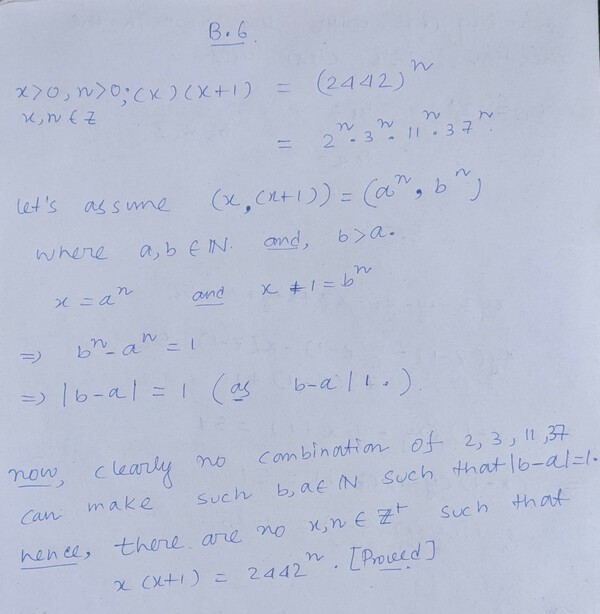 B.6.
x>0, n>0; (x)(x+1) = (2442)^n
x,n ∈ Z
= 2^n · 3^n · 11^n · 37^n.
let's assume (x, (x+1)) = (a^n, b^n)
where a,b ∈ IN. and, b>a.
x = a^n and x+1 = b^n
⇒ b^n - a^n = 1
⇒ |b-a| = 1 (as b-a | 1.)
now, clearly no combination of 2, 3, 11, 37
can make such b,a ∈ IN such that |b-a|=1.
hence, there are no x,n ∈ Z^+ such that
x (x+1) = 2442^n. [Proved]